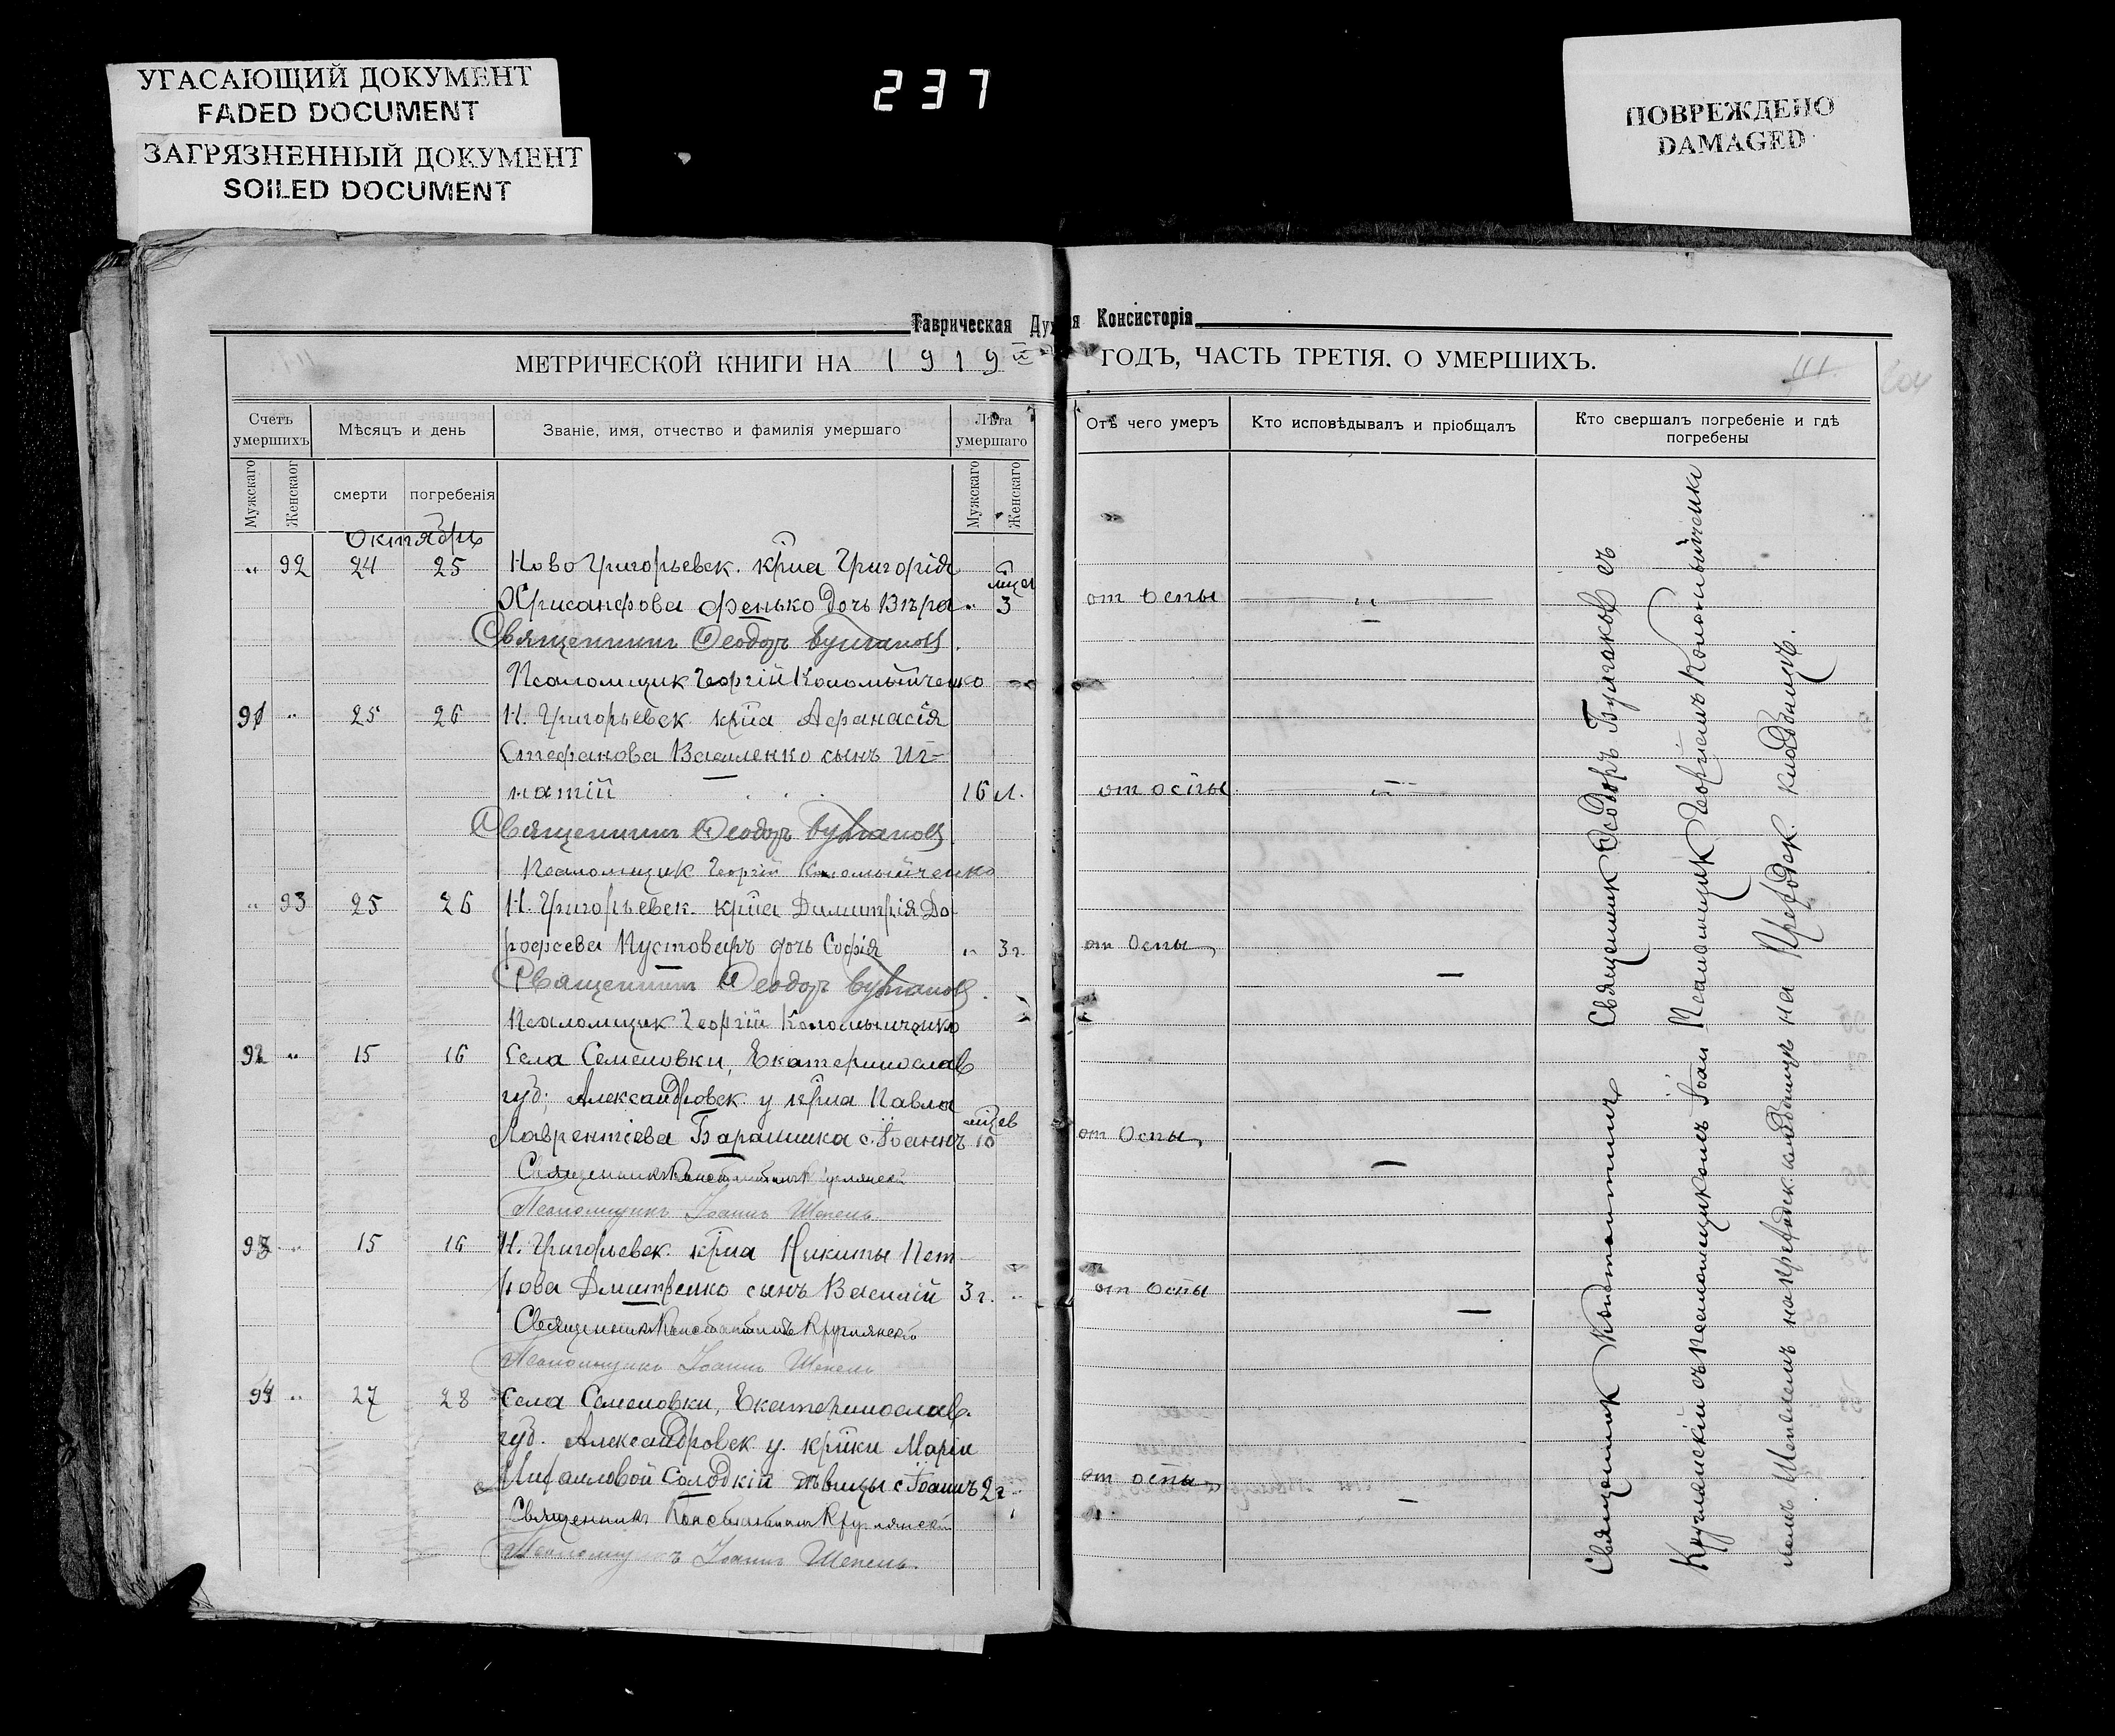 УГАСАЮЩИЙ ДОКУМЕНТ
FADED DOCUMENT
ЗАГРЯЗНЕННЫЙ ДОКУМЕНТ
SOILED DOCUMENT
237
ПОВРЕЖДЕНО
DAMAGED
Таврическая Ду я Консисторія
МЕТРИЧЕСКОЙ КНИГИ НА 1919 ГОДЪ, ЧАСТЬ ТРЕТІЯ. О УМЕРШИХЪ.
111.
Счетъ умершихъ
Мѣсяцъ и день
Званіе, имя, отчество и фамилія умершаго
Лѣта умершаго
Отъ чего умеръ
Кто исповѣдывалъ и пріобщалъ
Кто свершалъ погребеніе и гдѣ погребены
Мужскаго
Женскаго
смерти
погребенія
Мужскаго
Женскаго
Октября
„ 92 24 25 Ново Григорьевск. кр̃на Григорія
Хрисанфова Фенько дочь Вѣра „ 3 мѣс. от Оспы „
Священник Ѳеодор Булгаков.
Псаломщик Георгій Коломыйченко
91 „ 25 26 Н. Григорьевск кр̃на Афанасія
Стефанова Василенко сынъ Иг-
натій 16 л. от оспы „
Священник Ѳеодор Булгаков
Псаломщик Георгій Коломыйченко
„ 93 25 26 Н. Григорьевск. кр̃на Димитрія До
рофеева Пустоваръ дочь Софія „ 3 г. от Оспы —
Священник Ѳеодор Булгаков.
Псаломщик Георгій Коломыйченко
92 „ 15 16 Села Семеновки, Екатеринослав
губ; Александровск. у кр̃на Павла
Лаврентіева Барашика с. Іоаннъ 10 мѣсяцев от Оспы —
Священникъ Константинъ Круглянскій
Псаломщикъ Іоаннъ Шепель.
93 „ 15 16 Н. Григорьевск. кр̃на Никиты Пет
рова Дмитренко сынъ Василій 3 г. „ от оспы —
Священникъ Константинъ Круглянскій
Псаломщикъ Іоаннъ Шепель
94 „ 27 28 Села Семеновки, Екатеринослав.
губ. Александровск у. кр̃нки Маріи
Михаиловой Солодкій дѣвицы с Іоаннъ 2 г. от оспы —
Священникъ Константинъ Круглянскій
Псаломщикъ Іоаннъ Шепель.
Священник Константинъ Священник Ѳеодоръ Булгаков съ
Круглянскій съ псаломщикомъ Іоан Псаломщик Георгіемъ Коломыйченко
номъ Шепелемъ на приходск. кладбищѣ на Приходск. кладбищѣ.